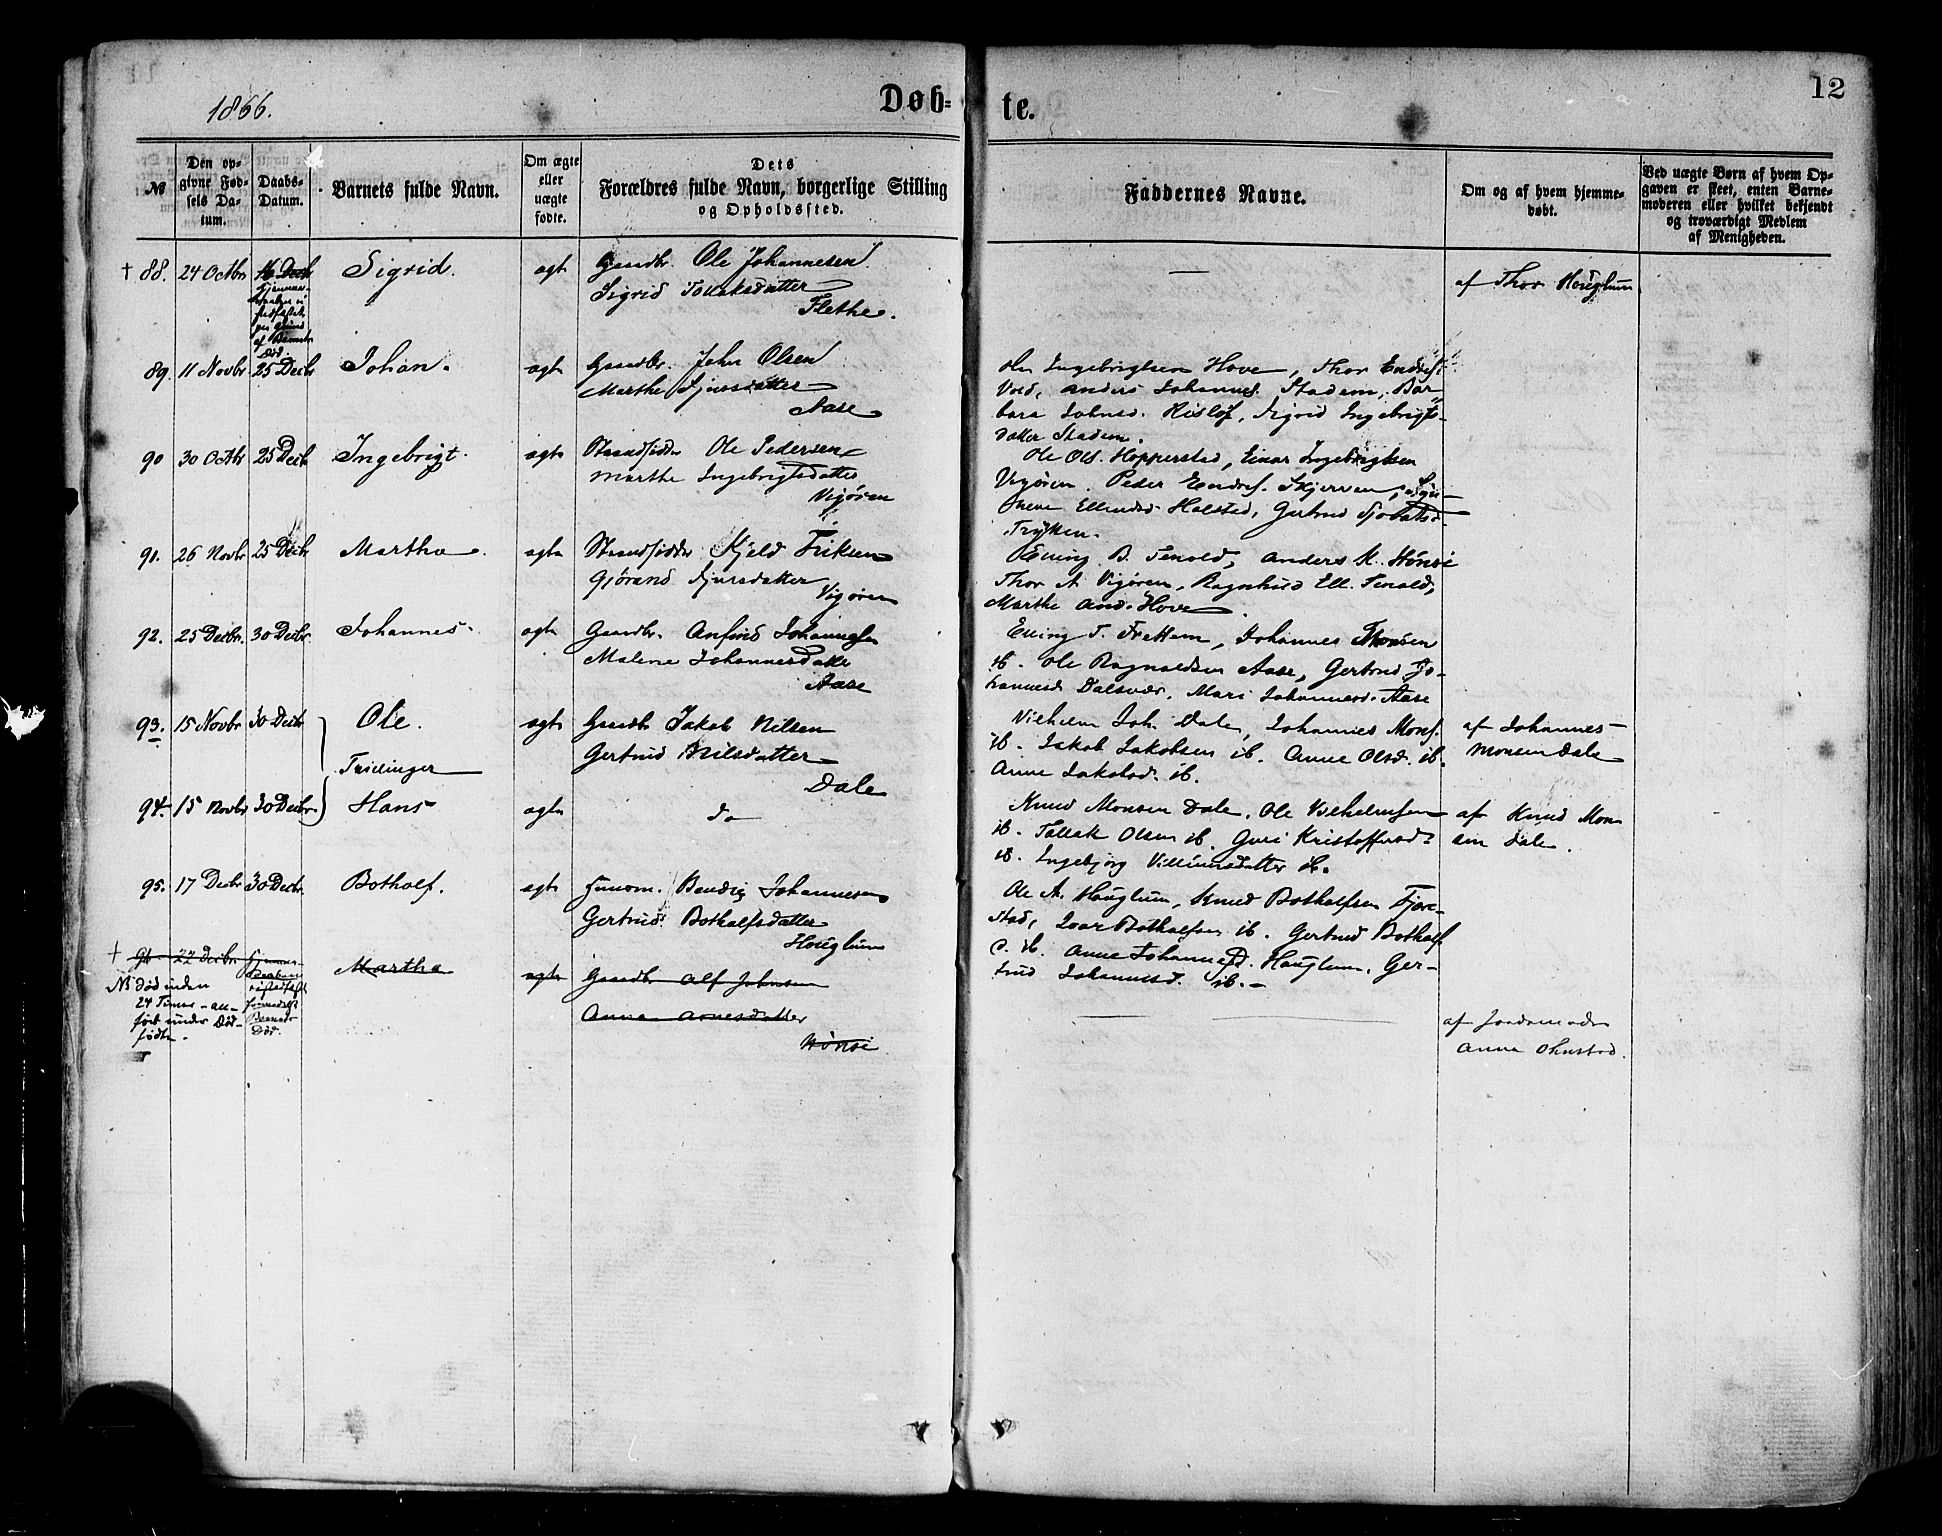 1866.
Døb-
te.
12
№
Den op-
givne Fød-
sels Da-
tum.
Daabs-
Datum.
Barnets fulde Navn.
Om ægte
eller
uægte
fødte.
Dets
Forældres fulde Navn, borgerlige Stilling
og Opholdssted.
Faddernes Navne.
Om og af hvem hjemme-
døbt.
Ved uægte Børn af hvem Op-
gaven er skeet, enten Barne-
moderen eller hvilket bekjendt
og troværdigt Medlem
af Menigheden.
† 88. 24 Octbr 16 Decb Sigrid. ægte Gaardbr. Ole Johannesen
Sigrid Tollaksdatter
Flethe.
af Barnets
Død.
af Thor Houglum
89. 11 Novbr 25 Decbr Johan. ægte Gaardbr. John Olsen
Marthe Sjursdatter
Aase
Ole Ingebrigtsen Hove, Thor Endres.
Vold, Anders Johannes. Stadem, Bar-
bara Johnsd. Risløf, Sigrid Ingebrigts-
datter Stadem.
90 30 Octbr 25 Decb Ingebrigt. ægte Strandsidder Ole Pedersen
Marthe Ingebrigtsdatter
Vigøren
Ole Ols. Hopperstad, Einar Ingebrigtsen
Vigøren. Peder Endres. Skjerven, Syn-
neve Ellendsd. Halstad, Gertrud
Tryken.
91. 26 Novbr 25 Decb Martha. ægte Strandsidder Kjeld Eriksen
Gjørand Sjursdatter
Vigøren
Elling B. Tenold, Anders K. Hønsi
Thor A. Vigøren, Ragnhild Ell. Tenold,
Marthe And. Hove.
92. 25 Decbr. 30 Decbr. Johannes. ægte Gaardbr. Anfind Johannesen
Malene Johannesdatter
Aase
Elling T. Frettem, Johannes Monsen
ib. Ole Ragnvaldsen Aase, Gertrud Jo-
hannesd Dalsvær. Mari Johannesd. Aase
93. 15 Novbr 30 Decbr Ole. ægte Gaardbr Jakob Nilsen
Gertrud Nilsdatter
Dale
Tvillinger
Vilhelm Joh. Dale, Johannes Mons.
ib. Jakob Jakobsen ib. Anne Olsd. ib.
Anne Jakobsd. ib.
af Johannes
Monsen Dale
94. 15 Novbr 30 Decbr. Hans ægte do
Knud Monsen Dale. Ole Vilhelmsen
ib. Tollak Olsen ib. Guri Kristoffersd.
ib. Ingebjørg Villumsdatter ib.
af Knud Mon-
sen Dale.
95. 17 Decbr 30 Decbr. Botholf. ægte Huusm. Bendix Johannesen
Gertrud Botholfsdatter
Houglum
Ole A. Houglum, Knud Botholfsen Fjære-
stad, Ivar Botholfsen ib. Gertrud Botholf
D. ib. Anne Johannesd. Houglum. Ger-
trud Johannesd. ib.
† 96. 22 Decbr Martha ægte Gaardbr Alf Johnsen
Anna Arnesdatter
Hønsi
NB død inden
24 Timer – an-
ført under Død-
fødte.
Hjemme-
daaben
Barnets
Død.
af Jordemoder
Anna Ohnstad.